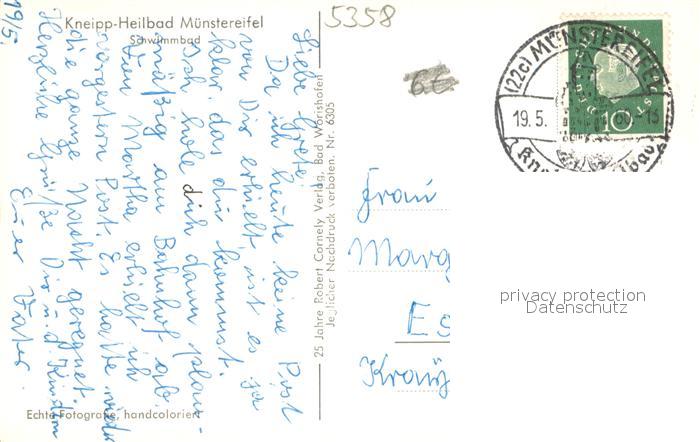 Kneipp-Heilbad Münstereifel
Schwimmbad
5358
19/5.
Liebe Grete!
Da ich heute keine Post
von Dir erhielt, ist es ja
klar, das du kommst.
Ich hole dich dann plan-
mäßig am Bahnhof ab.
Von Martha erhielt ich
vorgestern Post. Es hatte
die ganze Nacht geregnet.
Herzliche Grüße Dir u. d. Kindern
Euer Vater.
25 Jahre Robert Cornely Verlag, Bad Wörishofen
Jeglicher Nachdruck verboten. Nr. 6305
Echte Fotografie, handcoloriert
(22c) MÜNSTEREIFEL
19.5. 60-13
10
Frau
Marg
Es
privacy protection
Datenschutz